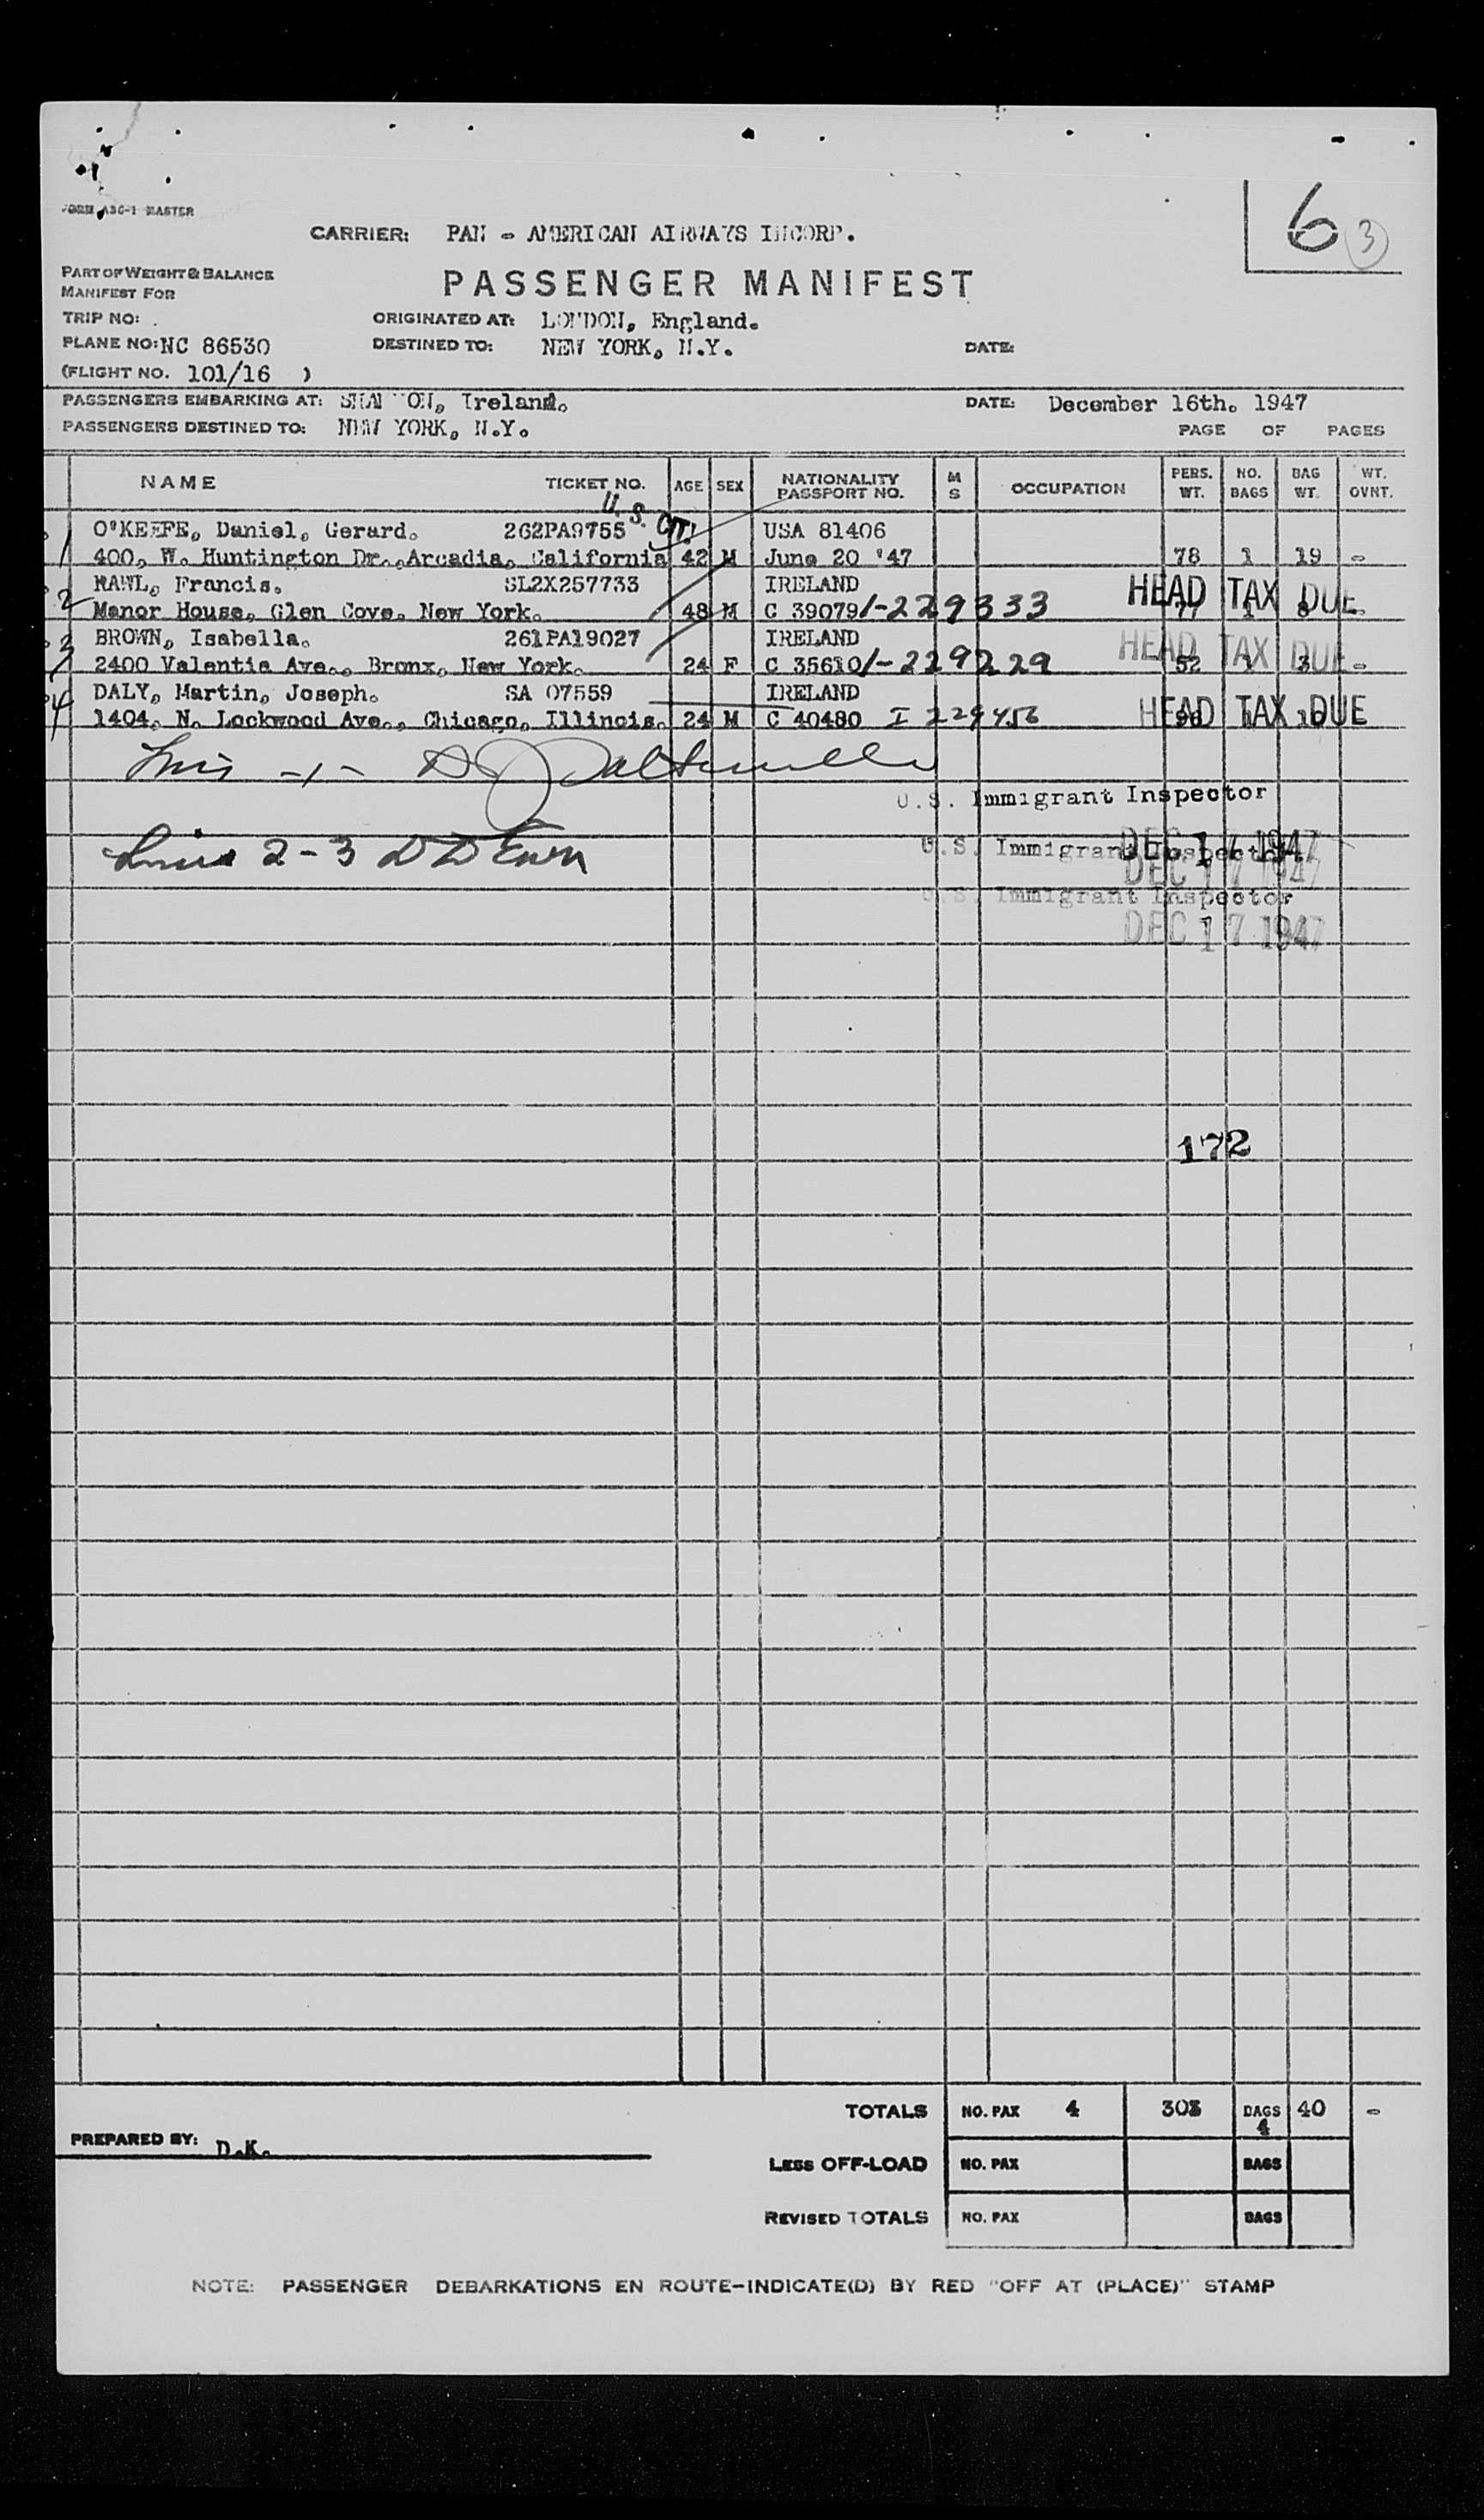 6 3
FORM ABC-1 MASTER
CARRIER: PAN - AMERICAN AIRWAYS INCORP.
PART OF WEIGHT & BALANCE
MANIFEST FOR
PASSENGER MANIFEST
TRIP NO: .
ORIGINATED AT: LONDON, England.
PLANE NO: NC 86530
DESTINED TO: NEW YORK, N.Y.
DATE:
(FLIGHT NO. 101/16 )
PASSENGERS EMBARKING AT: SHANNON, Ireland.
DATE: December 16th. 1947
PASSENGERS DESTINED TO: NEW YORK, N.Y.
PAGE OF PAGES
NAME TICKET NO. AGE SEX NATIONALITY PASSPORT NO. M S OCCUPATION PERS. WT. NO. BAGS BAG WT. WT. OVNT.
U.S. CIT.
O'KEEFE, Daniel, Gerard. 262PA9755 USA 81406
1 400, W. Huntington Dr., Arcadia, California 42 M June 20 '47 78 1 19 -
2 NAWL, Francis. SL2X257733 IRELAND HEAD TAX DUE
Manor House, Glen Cove, New York. 48 M C 39079 I-229333 77 1 8 -
3 BROWN, Isabella. 261PA19027 IRELAND HEAD TAX DUE
2400 Valentia Ave., Bronx, New York. 24 F C 35610 I-229229 52 1 3 -
4 DALY, Martin, Joseph. SA 07559 IRELAND HEAD TAX DUE
1404, N. Lockwood Ave., Chicago, Illinois. 24 M C 40480 I 229456 96 1 10
U.S. Immigrant Inspector
2-3
U.S. Immigrant Inspector
DEC 17 1947
DEC 17 1947
U.S. Immigrant Inspector
DEC 17 1947
172
TOTALS NO. PAX 4 303 BAGS 4 40 -
PREPARED BY: D.K.
LESS OFF-LOAD NO. PAX BAGS
REVISED TOTALS NO. PAX BAGS
NOTE: PASSENGER DEBARKATIONS EN ROUTE-INDICATE(D) BY RED "OFF AT (PLACE)" STAMP